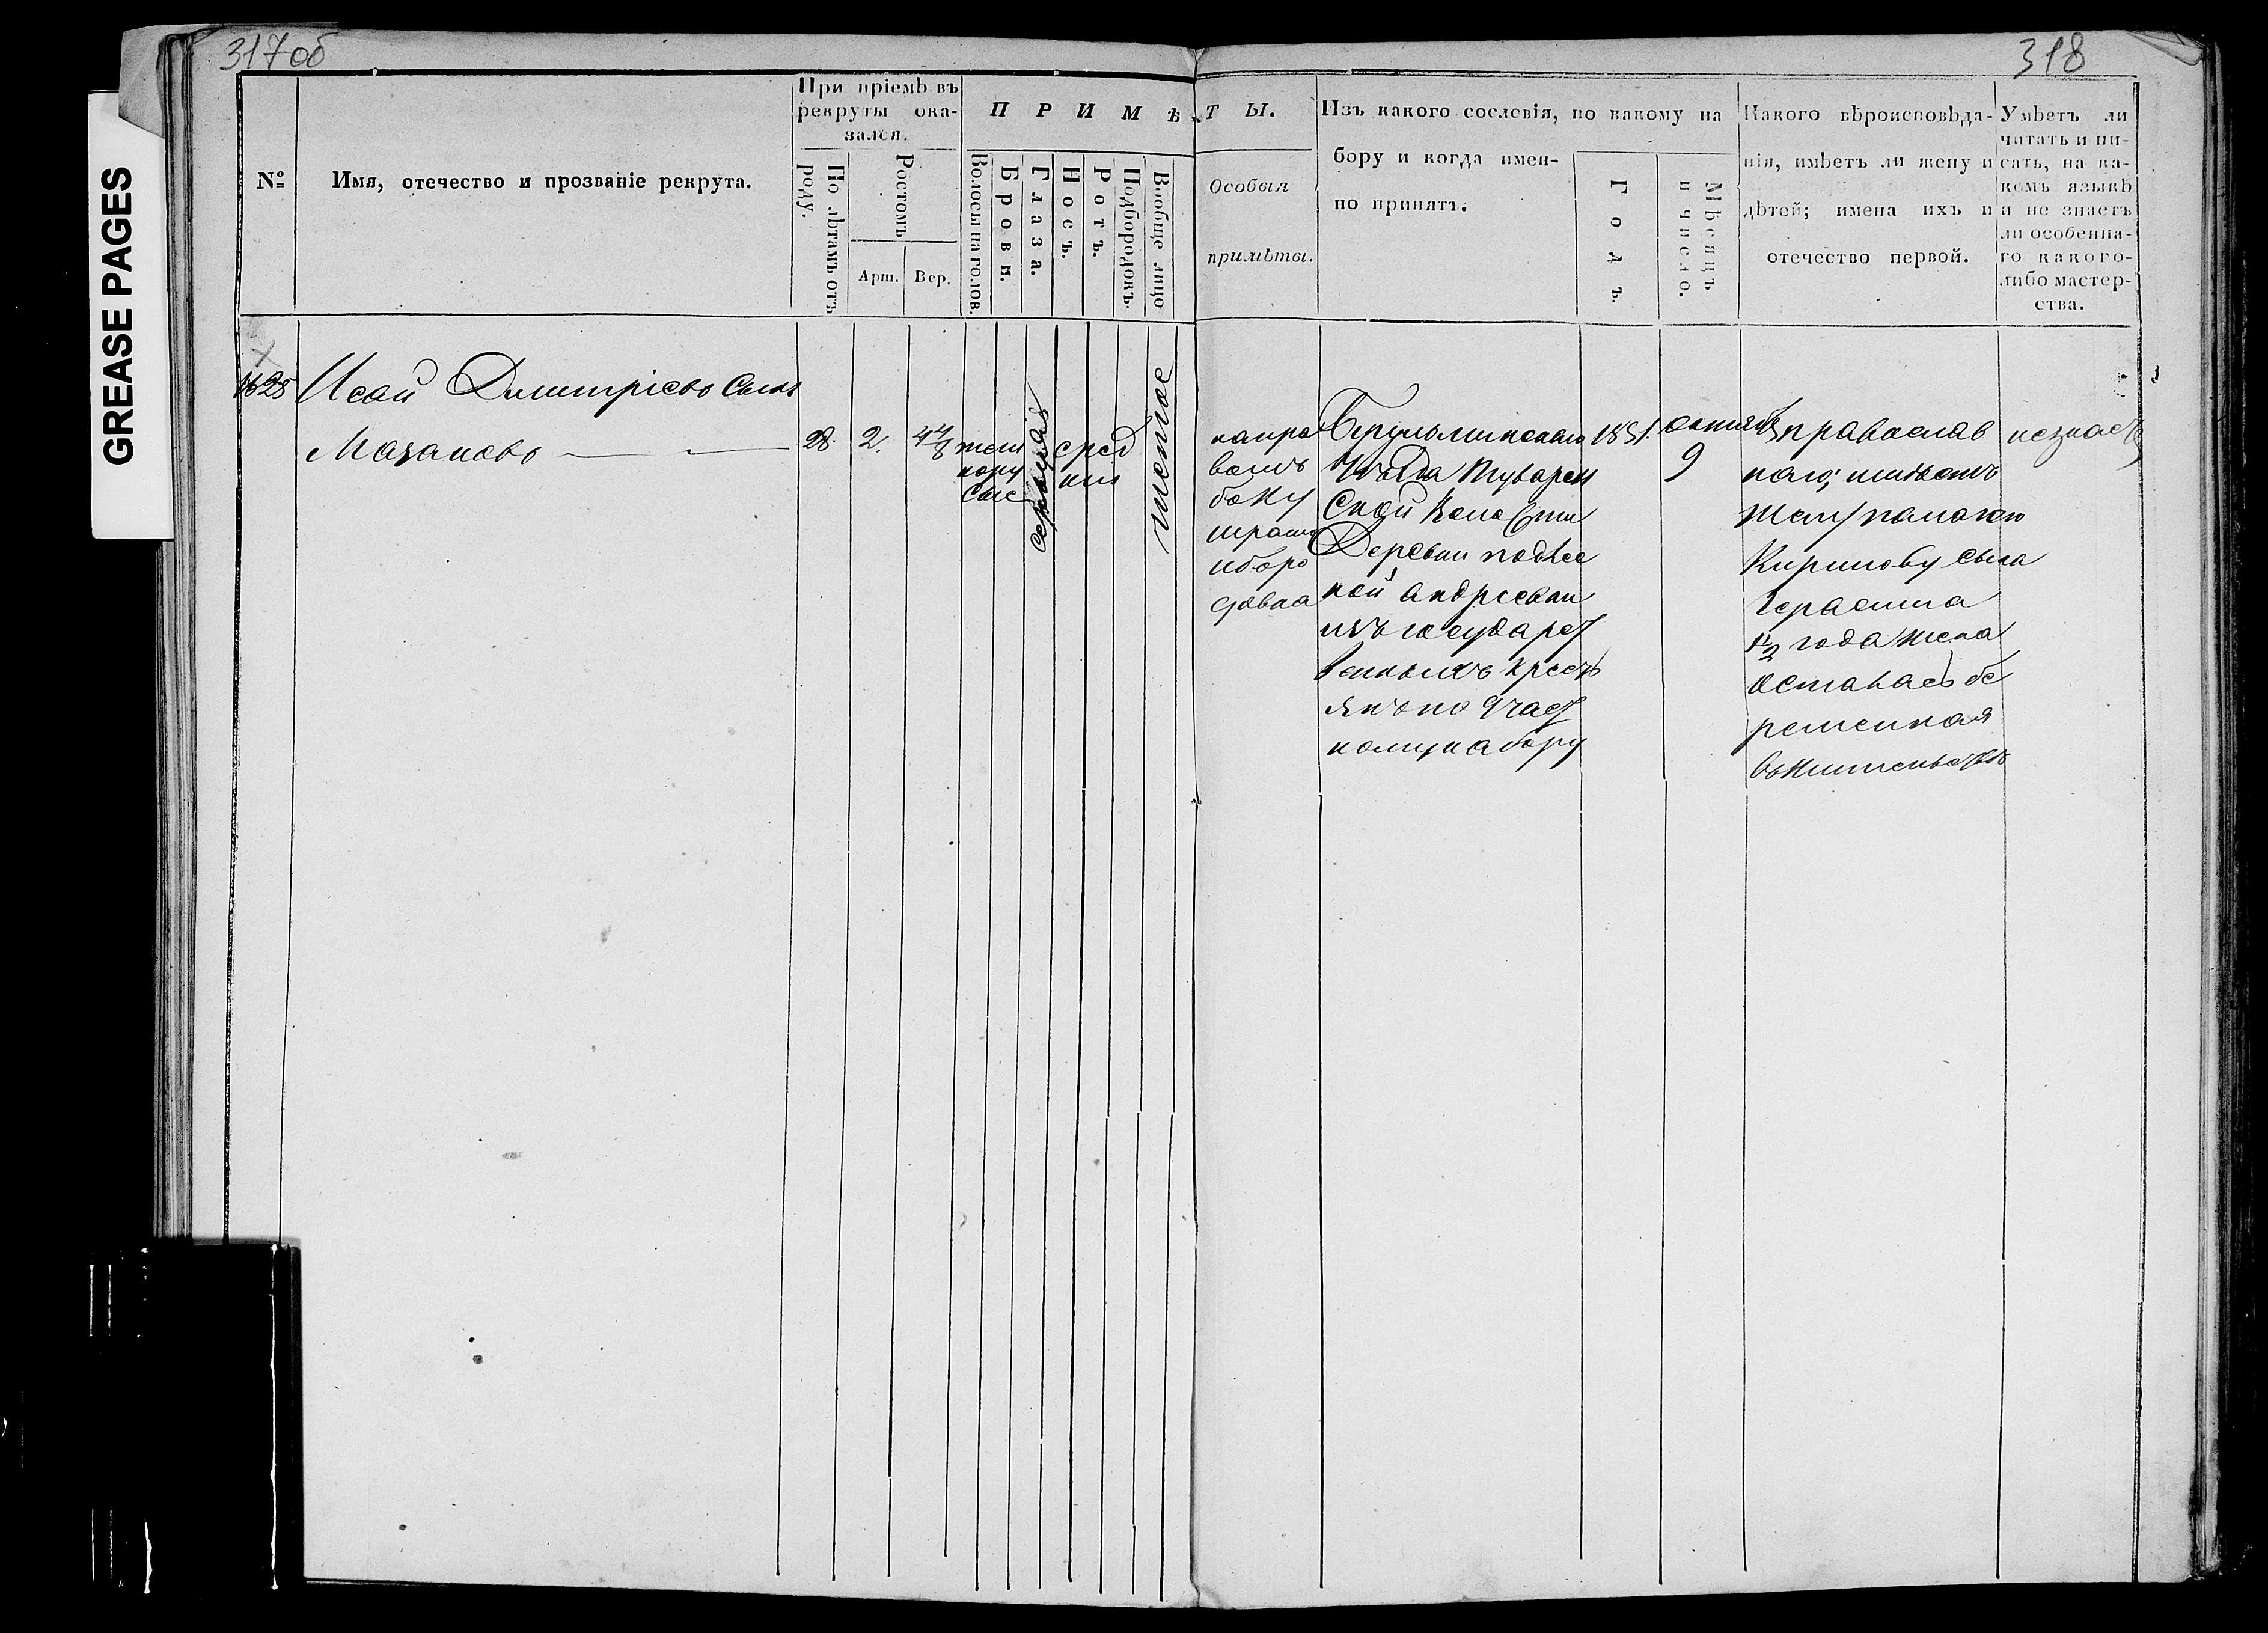 317об
318
GREASE PAGES
№
Имя, отечество и прозваніе рекрута.
При пріемѣ въ
рекруты ока-
зался.
По лѣтамъ отъ
роду.
Ростомъ
Арш.
Вер.
ПРИМѢТЫ.
Волосы на голов.
Брови.
Глаза.
Носъ.
Ротъ.
Подбородокъ.
Вообще лицо
Особыя
примѣты.
Изъ какого сословія, по какому на
бору и когда имен-
но принятъ.
Годъ.
Мѣсяцъ
и число.
Какого вѣроисповѣда-
нія, имѣетъ ли жену и
дѣтей; имена ихъ и
отечество первой.
Умѣетъ ли
читать и пи-
сать, на ка-
комъ языкѣ
и не знаетъ
ли особенна-
го какого-
либо мастер-
ства.
1628
Исай Димитріевъ сынъ
Мазановъ
28.
2.
4 4/8
темно
русые
серыя
сред
ніи
чистое
на пра
вомъ
боку
шрамъ
и боро
давка
Бугульминскаго
Уѣзда Туварлин
Ской Волости
Деревни подлес
ной Андреевки
изъ государст
венныхъ кресть
янъ по 9 част
ному набору
1851.
октября
9
православ
наго; имѣетъ
жену
Кирилову сына
Герасима
1/2 года жена
осталась бе
ременная
въ жительстве
незнаетъ